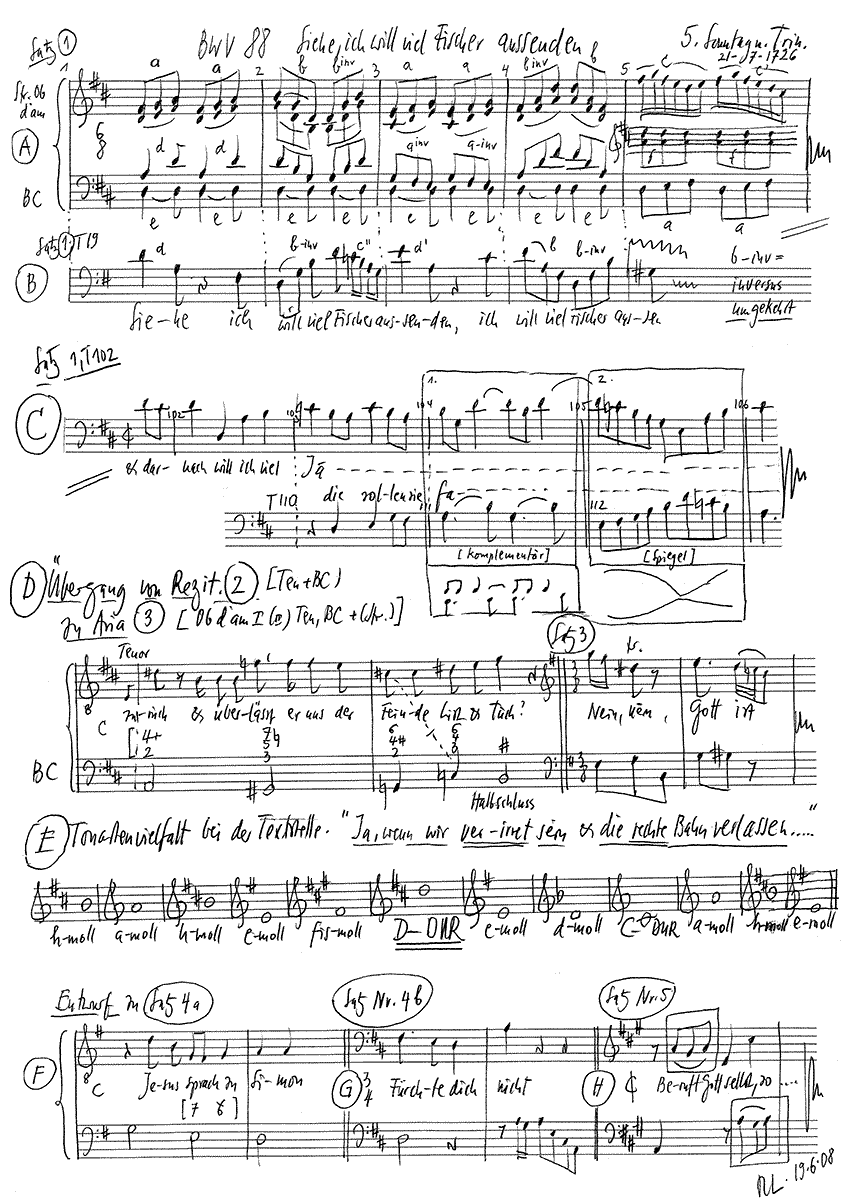 Satz 1 BWV 88 Siehe, ich will viel Fischer aussenden 5. Sonntag n. Trin.
21-07-1726
1 a a 2 b b inv 3 a a 4 b inv b 5 c c'
Str. Ob d'am
A 6 8 d d a inv a-inv f f
BC
e e e e e e e e a a
Satz 1. T 19
B d b-inv c" d' b b-inv b-inv =
inversus
umgekehrt
Sie-he ich will viel Fischer aus-sen-den, ich will viel Fischer aus-sen
Satz 1, T 102
C 102 103 104 1. 105 2. 106
& dar-nach will ich viel Jä
T 110 die sol-len sie fa 112
[Komplementär] [Spiegel]
D Übergang von Rezit. 2 [Ten + BC]
zu Aria 3 [Ob d'am I (II) Ten, BC + (Str.)]
Satz 3
Tenor tr.
8 C zu-rück & über-lässt er uns der Fein-de List & Tück? Nein, nein, Gott ist
[4+ 2 7♮ 5 3 6 4# 2 6 4 3 #
BC 3 8
Halbschluss
E Tonartenvielfalt bei der Textstelle. "Ja, wenn wir ver-irret sein & die rechte Bahn verlassen....."
h-moll a-moll h-moll e-moll fis-moll D-DUR e-moll d-moll C-DUR a-moll h-moll e-moll
Entwurf zu Satz 4a Satz Nr. 4b Satz Nr. 5
F 8 C Je-sus sprach zu Si-mon G 3 4 Fürch-te dich nicht H ¢ Be-ruft Gott selbst, so ....
[7 6]
RL. 19.6.08